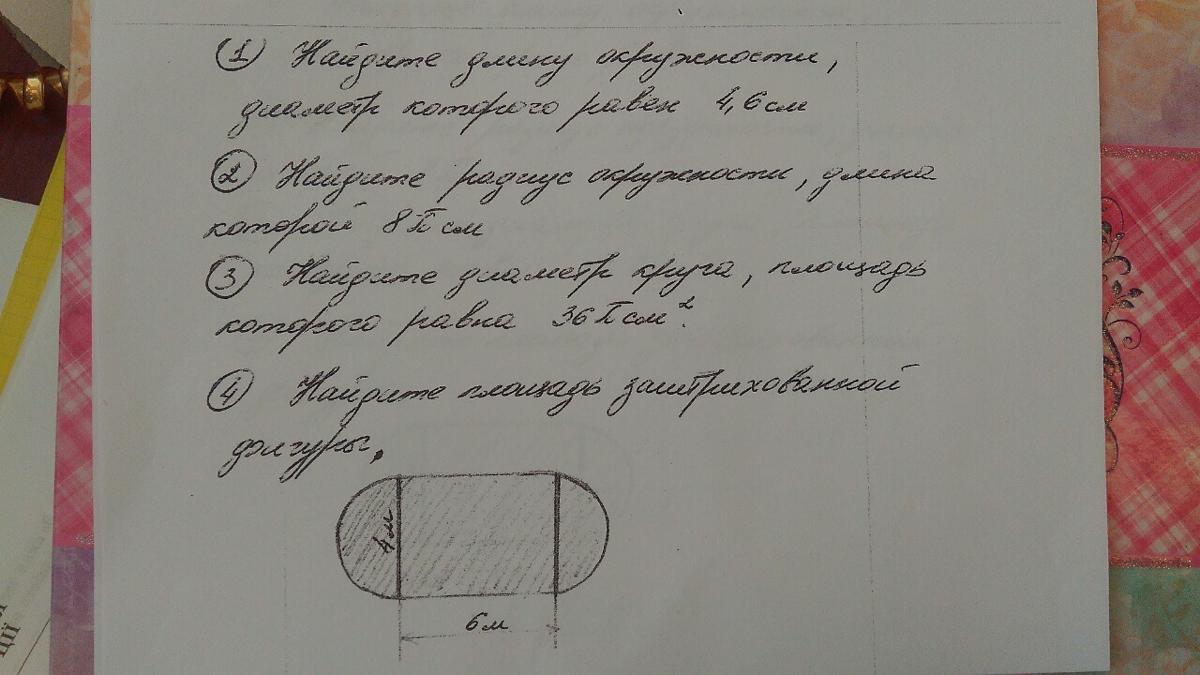 ① Найдите длину окружности,
диаметр которого равен 4,6 см
② Найдите радиус окружности, длина
которой 8π см
③ Найдите диаметр круга, площадь
которого равна 36π см².
④ Найдите площадь заштрихованной
фигуры.
4м
6м
ції